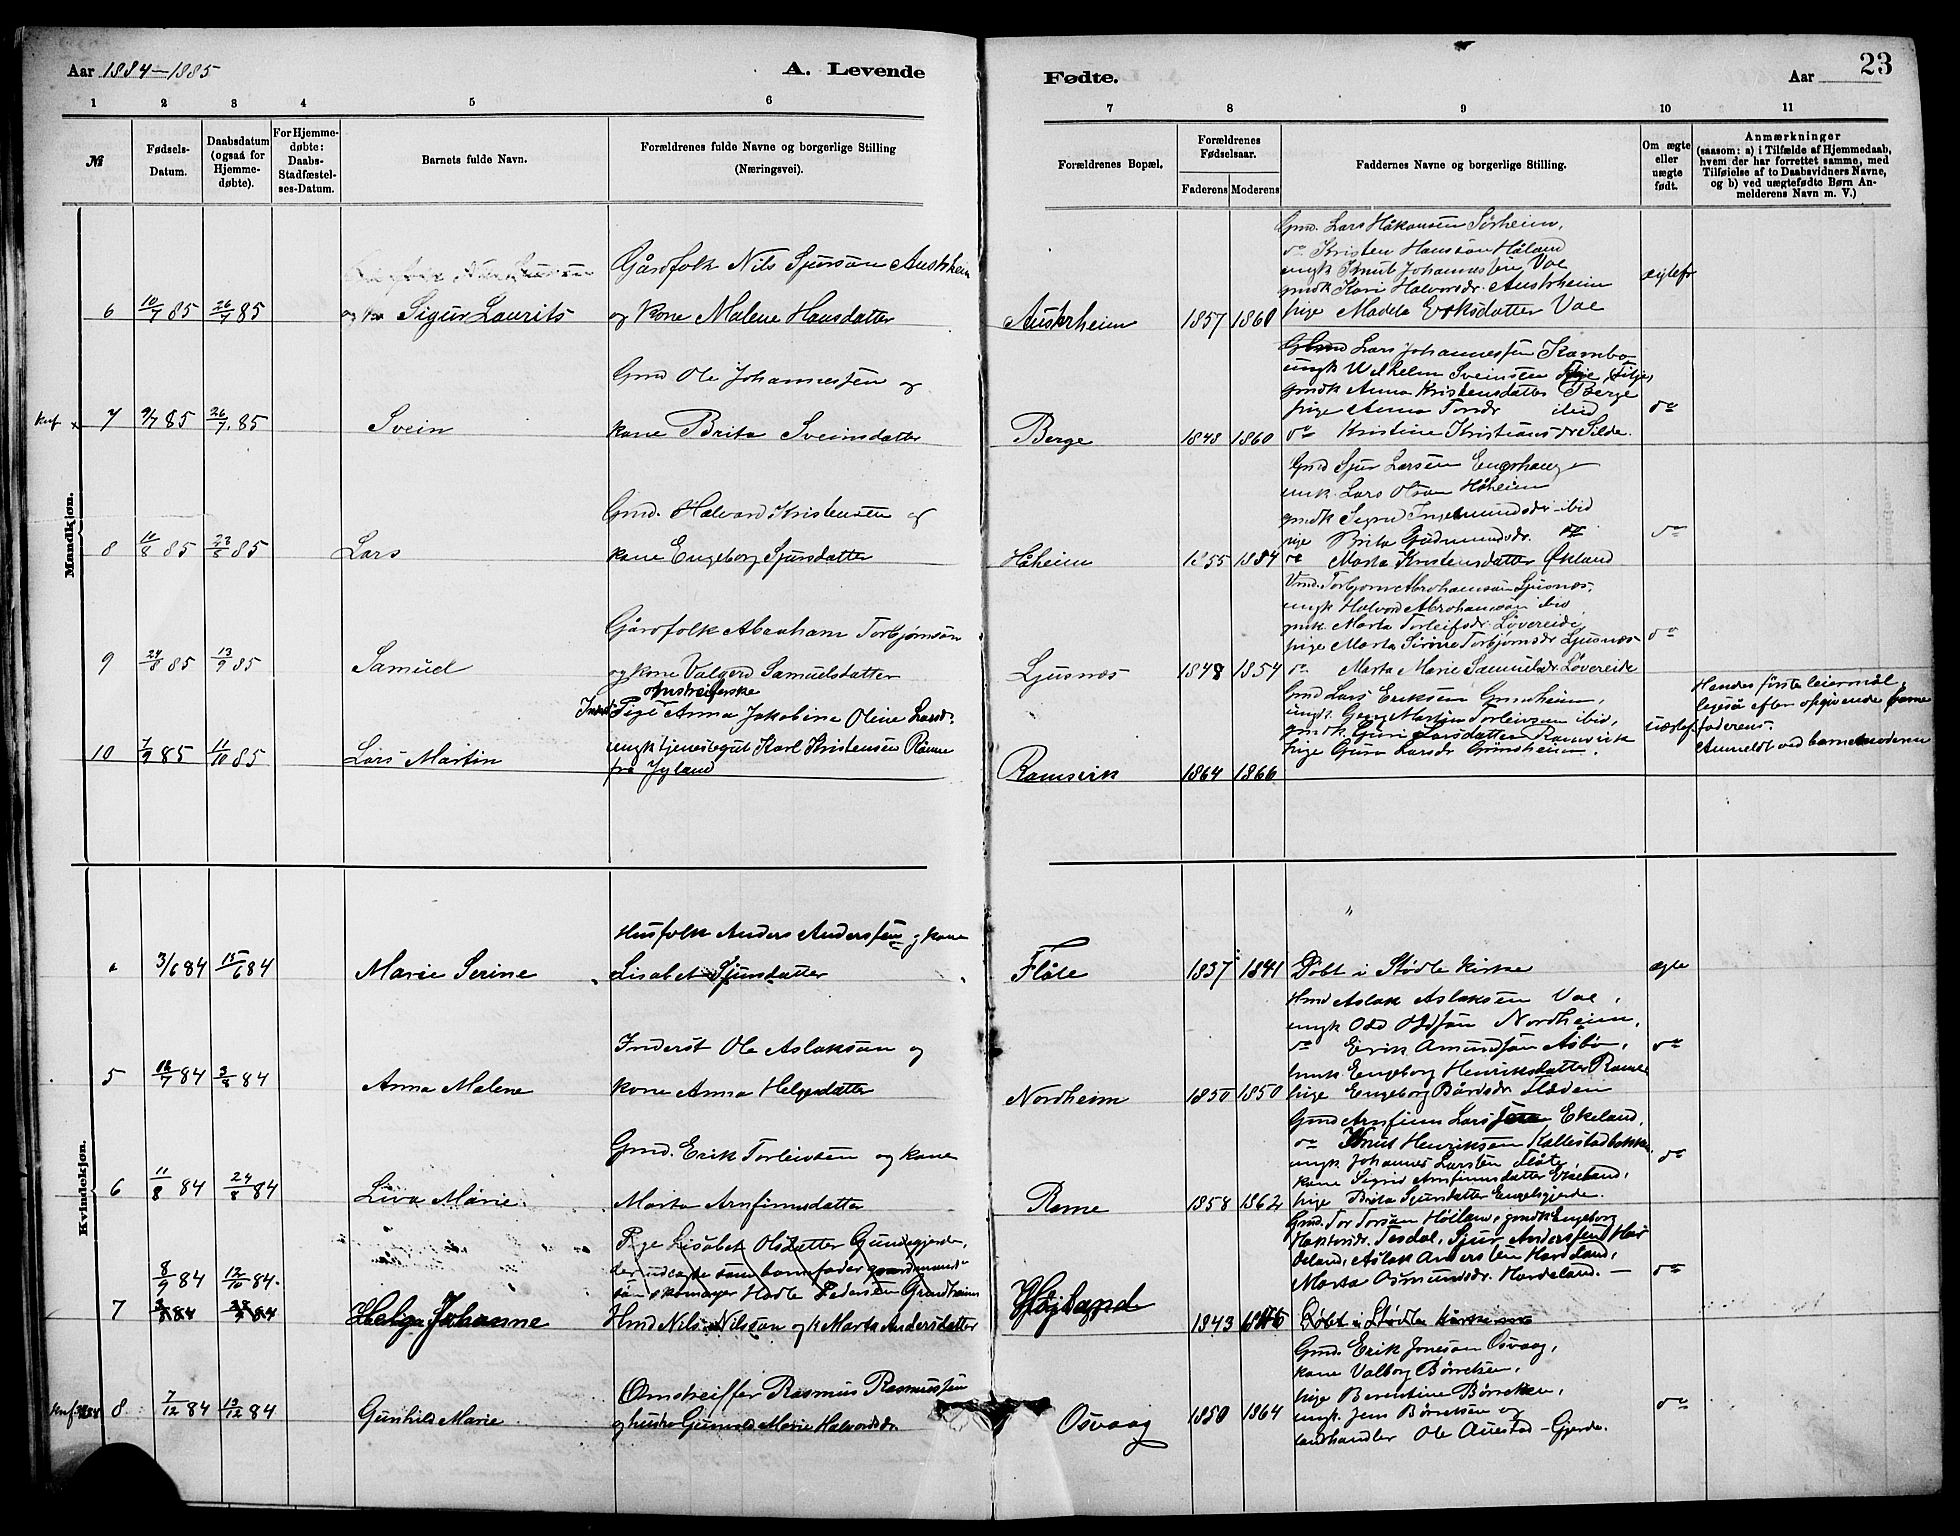 Aar 1884-1885
A. Levende
Fødte.
Aar
23
1 2 3 4 5 6 7 8 9 10 11
№
Fødsels-
Datum.
Daabsdatum
(ogsaa for
Hjemme-
døbte).
For Hjemme-
døbte:
Daabs-
Stadfæstel-
ses-Datum.
Barnets fulde Navn.
Forældrenes fulde Navne og borgerlige Stilling
(Næringsvei).
Forældrenes Bopæl.
Forældrenes
Fødselsaar.
Faderens Moderens
Faddernes Navne og borgerlige Stilling.
Om ægte
eller
uægte
født.
Anmærkninger
(saasom: a) i Tilfælde af Hjemmedaab,
hvem der har forrettet samme, med
Tilføielse af to Daabsvidners Navne,
og b) ved uægtefødte Børn An-
melderens Navn m. V.)
Mandkjøn.
6 10/7 85 26/7 85 Sigur Laurits
Gårdfolk Nils Sjursøn Austrheim
og kone Malene Hansdatter
Austrheim 1857 1860
Gmd. Lars Håkonsen Sørheim,
do Kristen Hansson Håland
ungk Knut Johannessen Vae
gmdk Kari Halvorsdr. Austrheim
pige Madela Eriksdatter Vae
ægtef
7 9/7 85 26/7 85 Svein
Gmd Ole Johannessen og
kone Brita Sveinsdatter
Berge 1848 1860
Lars Johannessen Kambo
ungk Wilhelm Sveinsen Tilje,
gmdk Anna Kristensdatter Berge
pige Anna Tordr ibid
do Kristine Kristiansdr Silde.
do
8 11/8 85 23/8 85 Lars
Gmd. Halvard Kristensen og
kone Engeborg Sjursdatter
Håheim 1855 1884
Gmd Sjur Larsen Engrhaug
ungk. Lars Olson Håheim
gmdk Signe Ingemundsdr ibid
pige Brita Gudmundsdr. do
do Marta Kristensdatter Økland
do
9 24/8 85 13/9 85 Samuel
Gårdfolk Abraham Torbjørnsøn
og kone Valgerd Samuelsdatter
Ljusnæs 1848 1854
Gmd. Torbjørn Abrahamsøn Ljusnæs,
ungk Halvord Abrahamsøn ibid
gmk. Marta Torleifsdr. Løvereide
pige Marta Sirine Torbjørnsdr Ljusnæs
do Marta Marie Samuelsdr Løvereide
do
10 7/9 85 11/10 85 Lars Martin
Pige Anna Jakobine Oline Lars-
ungk tjenestegut Karl Kristensen Ramne
fra Jyland
Ramsvik 1864 1866
Gmd Lars Eriksen Grindheim,
ungk. Martin Torleivsen ibid,
gmdk Guri Larsdatter Ramsvik
pige Guro Larsdr Grindheim.
uægtef.
Hendes første leiermål,
ligeså efter opgivende
faderens.
Anmeldt ved barnemoderen
Kvindekjøn.
3/6 84 15/6 84 Marie Serine
Husfolk Anders Andersen og kone
Lisabet Sjursdatter
Flåte 1837 1841
"
Døbt i Stødle Kirke
ægte
5 16/7 84 3/8 84 Anna Malene
Inderst Ole Aslaksøn og
kone Anna Helgesdatter
Nordheim 1850 1850
Hmd Aslak Aslaksen Vae,
ungk Odd Oddsøn Nordheim,
do Erik Amundsøn Åsbø,
hmk. Engeborg Henriksdatter Ramne
pige Engeborg Bårdsdr Hæden
do
6 11/8 84 24/8 84 Liva Marie
Gmd. Erik Torleivsen og kone
Marta Arnfinnsdatter
Rame 1858 1862
Gmd Arnfinn Larssen Ekeland,
do Knut Henriksen Kallestadbakke,
ungk Johannes Larsen Flåte
kone Signe Arnfinnsdatter Ekeland,
pige Brita Sjursdatter Engelsgjerde.
do
8/9 84 12/10 84.
7 Helga Johanne
Pige Lisabet Olsdatter Gundegjerde,
der udlagde som barnfader gaardmands-
søn skomager Hadle Pedersen Grindheim
Hmd Nils Nilssøn og k Marta Andersdatter
Højland 1843
Gmd. Tor Torsøn Høiland, gmdk Engeborg
Haktorsdr. Tesdal, Sjur Anderssen Har
deland, Aslak Andersen Hardeland,
Marta Osmundsdr. Hardeland. —
Døbt i Stødle Kirke
do
8 7/12 84 13/12 84 Gunhild Marie
Omstreiffer Rasmus Rasmussen
og hustro Gunnild Marie Halvorsdr.
Osvaag 1850 1864
Gmd. Erik Jonesøn Osvaag,
kone Valborg Børretsen,
pige Berentine Børretsen,
ungk. Jens Børretsen og
landhandler Ole Auestad-Gjerde.
do